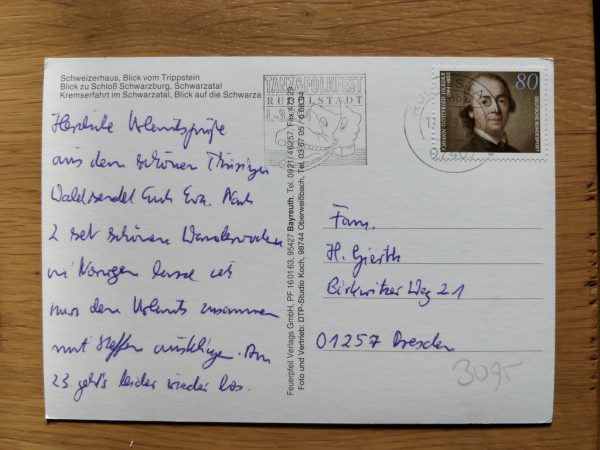 Schweizerhaus, Blick vom Trippstein
Blick zu Schloß Schwarzburg, Schwarzatal
Kremserfahrt im Schwarzatal, Blick auf die Schwarza
Herzliche Urlaubsgrüße
aus dem schönen Thüringer
Wald sendet Euch Eva. Nach
2 sehr schönen Wanderwochen
in Norwegen lasse ich
nun den Urlaub zusammen
mit Steffen ausklingen. Am
23. geht's leider wieder los.
Feuerpfeil Verlags GmbH, PF 160163, 95427 Bayreuth, Tel. 0921/46257, Fax 47329
Foto und Vertrieb: DTP-Studio Koch, 98744 Oberweißbach, Tel. 03 67 05 / 6 08 04
TANZ&FOLKFEST
RUDOLSTADT
80
JOHANN GOTTFRIED HERDER
DEUTSCHE BUNDESPOST
07407
Fam.
H. Gierth
Birkwitzer Weg 21
01257 Dresden
3095